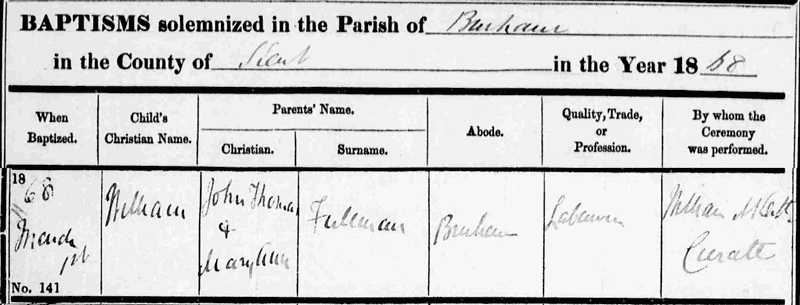 BAPTISMS solemnized in the Parish of Burham
in the County of Kent in the Year 18 68
When Baptized. Child's Christian Name. Parents' Name. Abode. Quality, Trade, or Profession. By whom the Ceremony was performed.
Christian. Surname.
18
68
March
1st
No. 141
William
John Thomas
&
Mary Ann
Fullman
Burham
Labourer
William
Curate